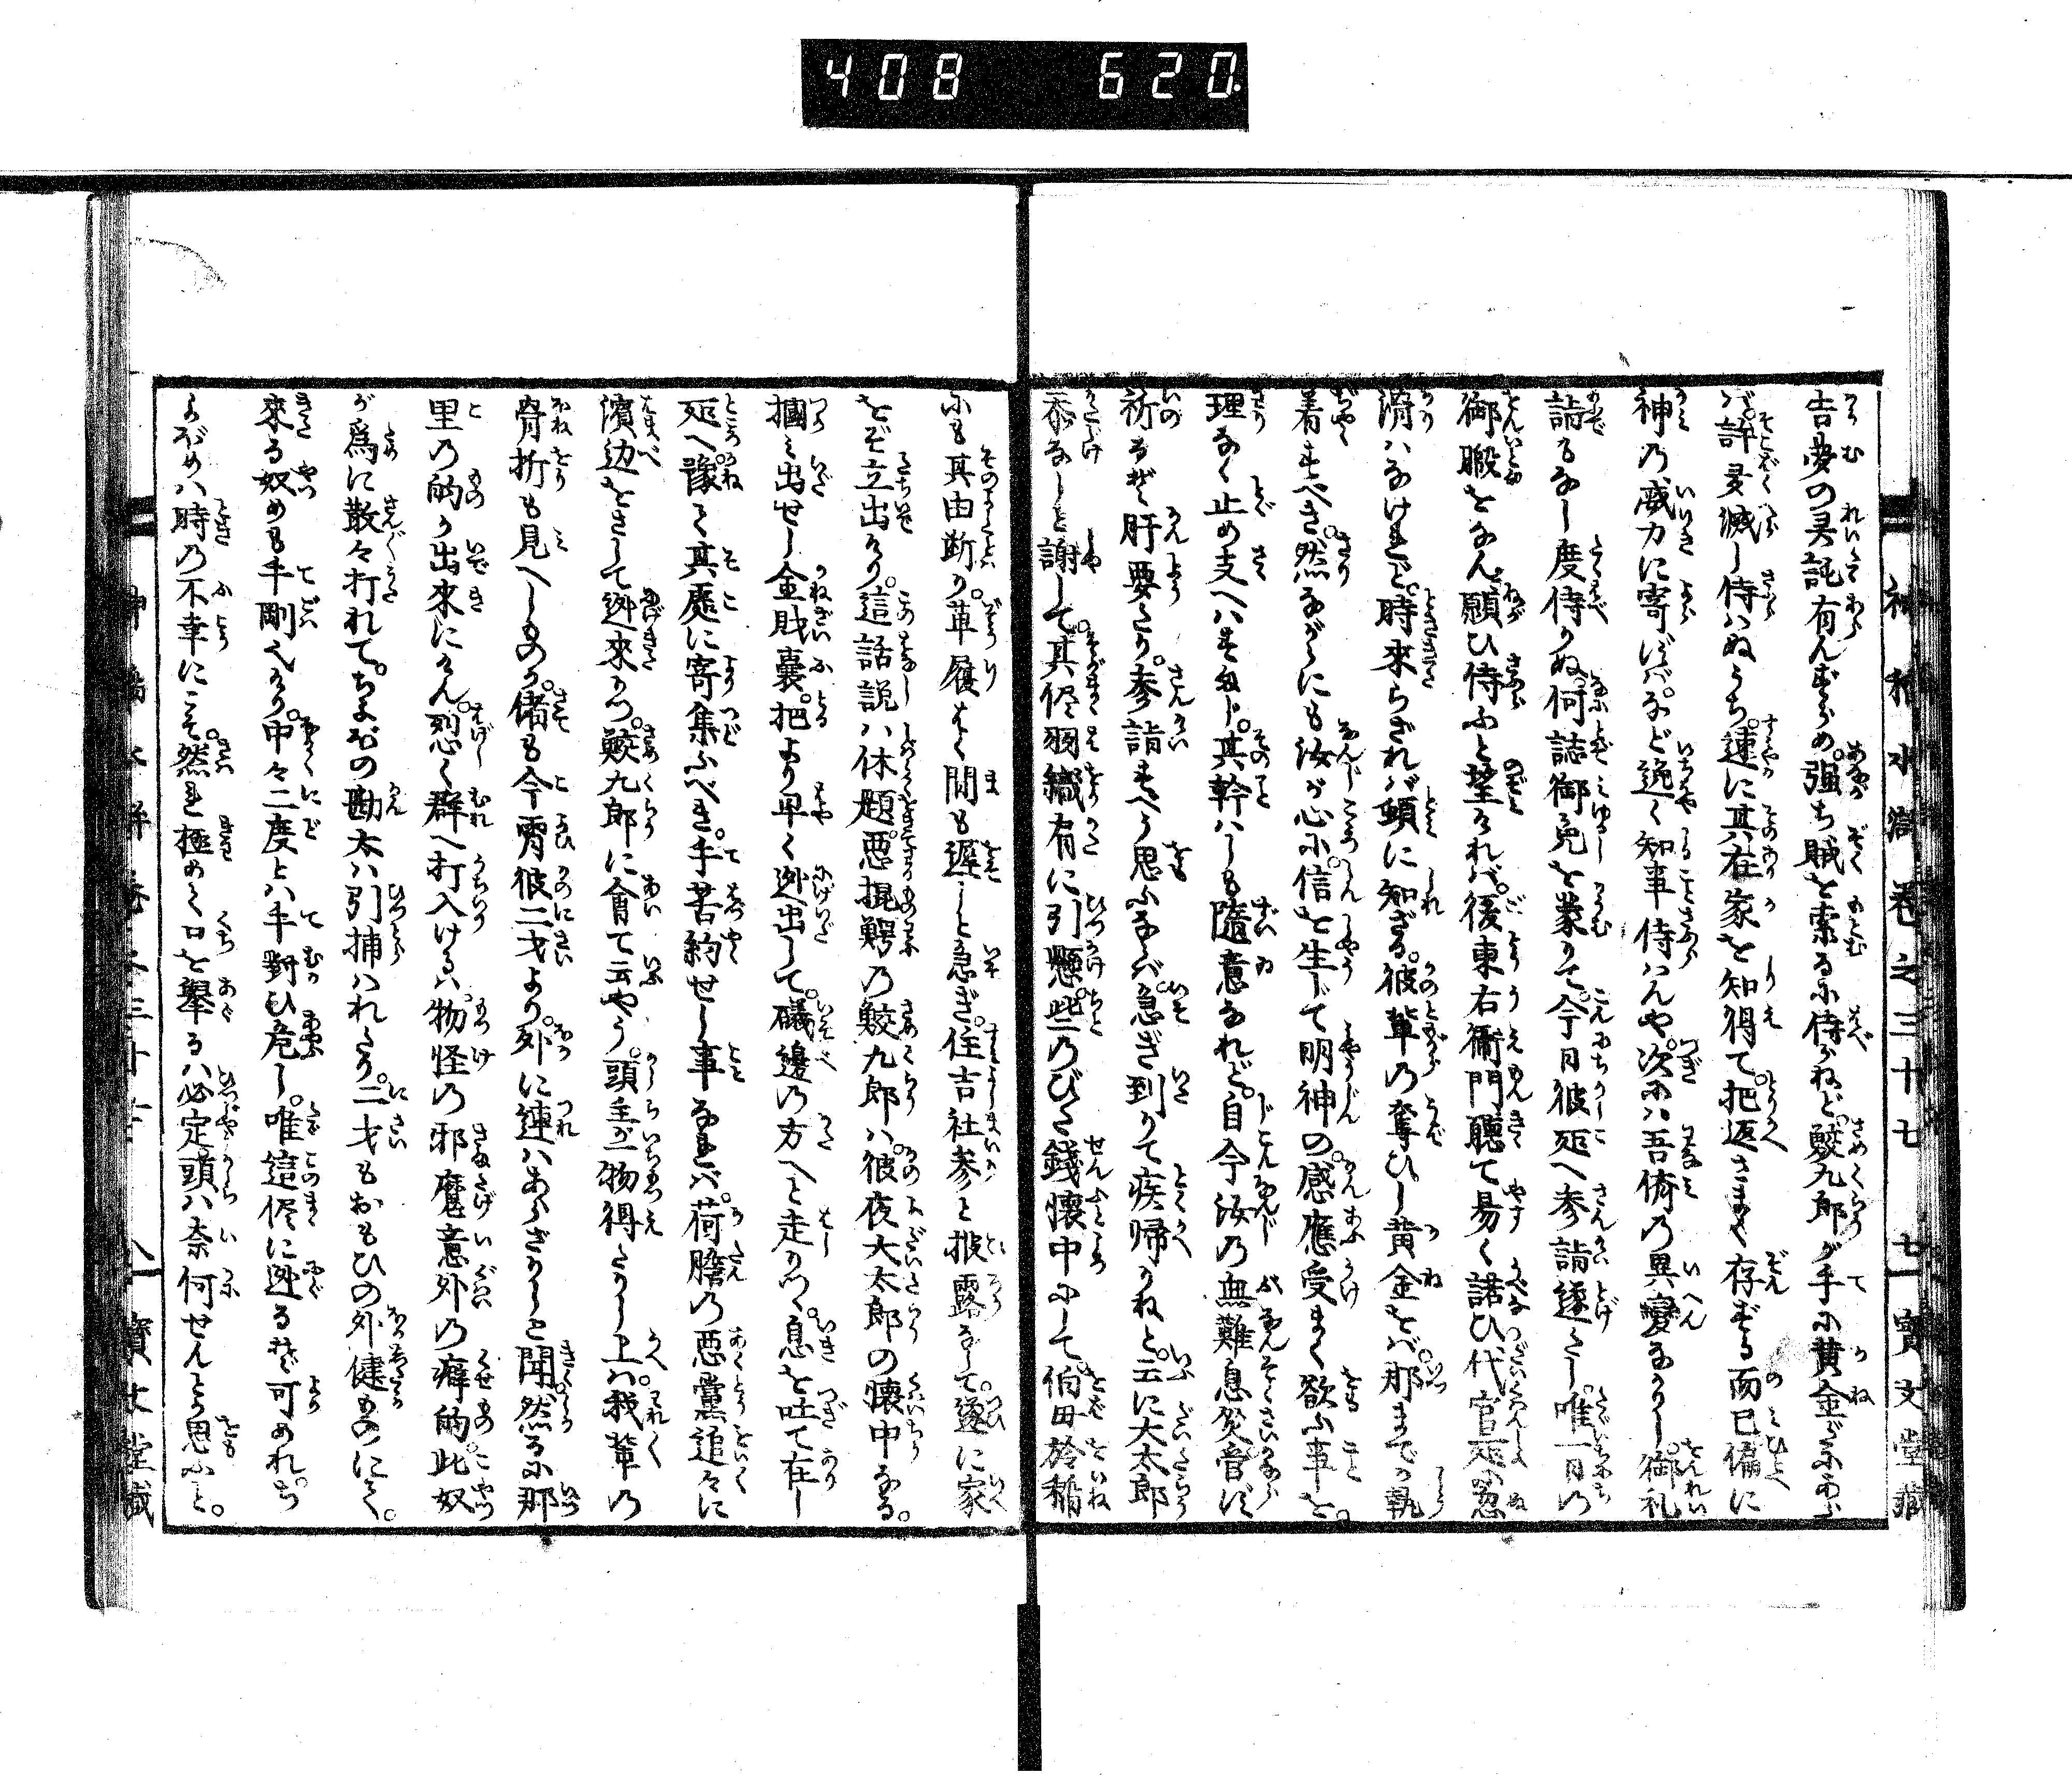 408 620
神稲水滸傳 巻之三十七 七 寶文堂藏
告夢の灵詫有んずらめ。強ち賊を索るに侍らねど。鮫九郎が手に黄金だにあら
バ。許多減し侍ハぬうち。速に其在家を知得て。把返さまく存ずる而已。偏に
神の威力に寄ずバ。など逸く知事侍ハんや。次にハ吾脩の異變なかりし。御礼
詣もなし度侍りぬ。何誌御免を蒙りて。今日彼処へ参詣遂たし。唯一日の
御暇をなん。願ひ侍ふと望けれバ。後東右衛門聴て易く諾ひ。代官所の怱
滞ハなけれど。時来らざれバ顕に知ざる。彼輩の奪ひし黄金をバ。那までか執
着すべき。然ながらにも汝が心に。信を生じて明神の。感應受まく欲ふ事を。
理なく止め支へハすまじ。其幹ハしも隨意なれど。自今汝の無難息災。啻に
祈るぞ肝要たり。参詣すべう思ふならバ。急ぎ到りて疾帰りねと。云に大太郎
忝なしと謝して。其侭羽織肩に引懸。些のびた錢懐中にして。伯母於稲
にも其由断り。草履はく間も遅しと急ぎ。住吉社参と披露なして。遂に家
をぞ立出けり。這話説ハ休題。悪棍鰐の鮫九郎ハ。彼夜大太郎の懐中なる。
掴ミ出せし金財嚢。把より早く迯出して。礒邊の方へと走りつ。息を吐て在し
処へ。豫て其處に寄集ふべき。手苦約せし事なれバ。荷膽の悪黨追々に
濱辺をさして迯来りつ。鮫九郎に會て云やう。頭主が物得たりし上ハ。我輩の
脊折も見へしものか。偖も今宵彼二才より。外に連ハあらざりしと聞。然るに那
里の的か出来にけん。烈く群へ打入けるハ。物怪の邪魔意外の癖的。此奴
が為に散々打れて。ちよぼの勘太ハ引捕ハれたり。二才もおもひの外健ものにて。
来る奴めも手剛くなり。中々二度とハ手對ひ危し。唯這侭に迯るぞ可めれ。ち
よぼめハ時の不幸にこそ。然れ極めて口を舉るハ必定。頭ハ奈何せんとか思ふと。
八 寶文堂藏